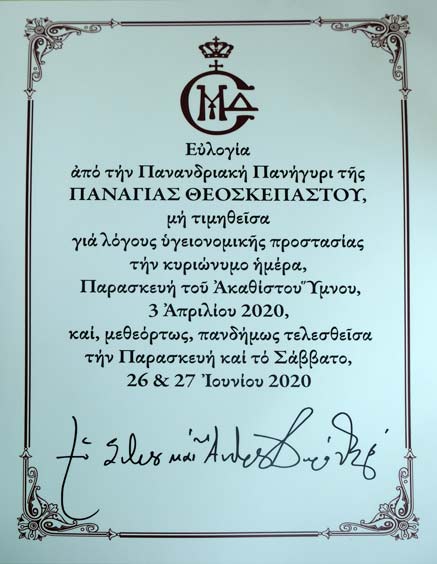 Εὐλογία
ἀπό τήν Πανανδριακή Πανήγυρι τῆς
ΠΑΝΑΓΙΑΣ ΘΕΟΣΚΕΠΑΣΤΟΥ,
μή τιμηθεῖσα
γιά λόγους ὑγειονομικῆς προστασίας
τήν κυριώνυμο ἡμέρα,
Παρασκευή τοῦ Ἀκαθίστου Ὕμνου,
3 Ἀπριλίου 2020,
καί, μεθεόρτως, πανδήμως τελεσθεῖσα
τήν Παρασκευή καί τό Σάββατο,
26 & 27 Ἰουνίου 2020